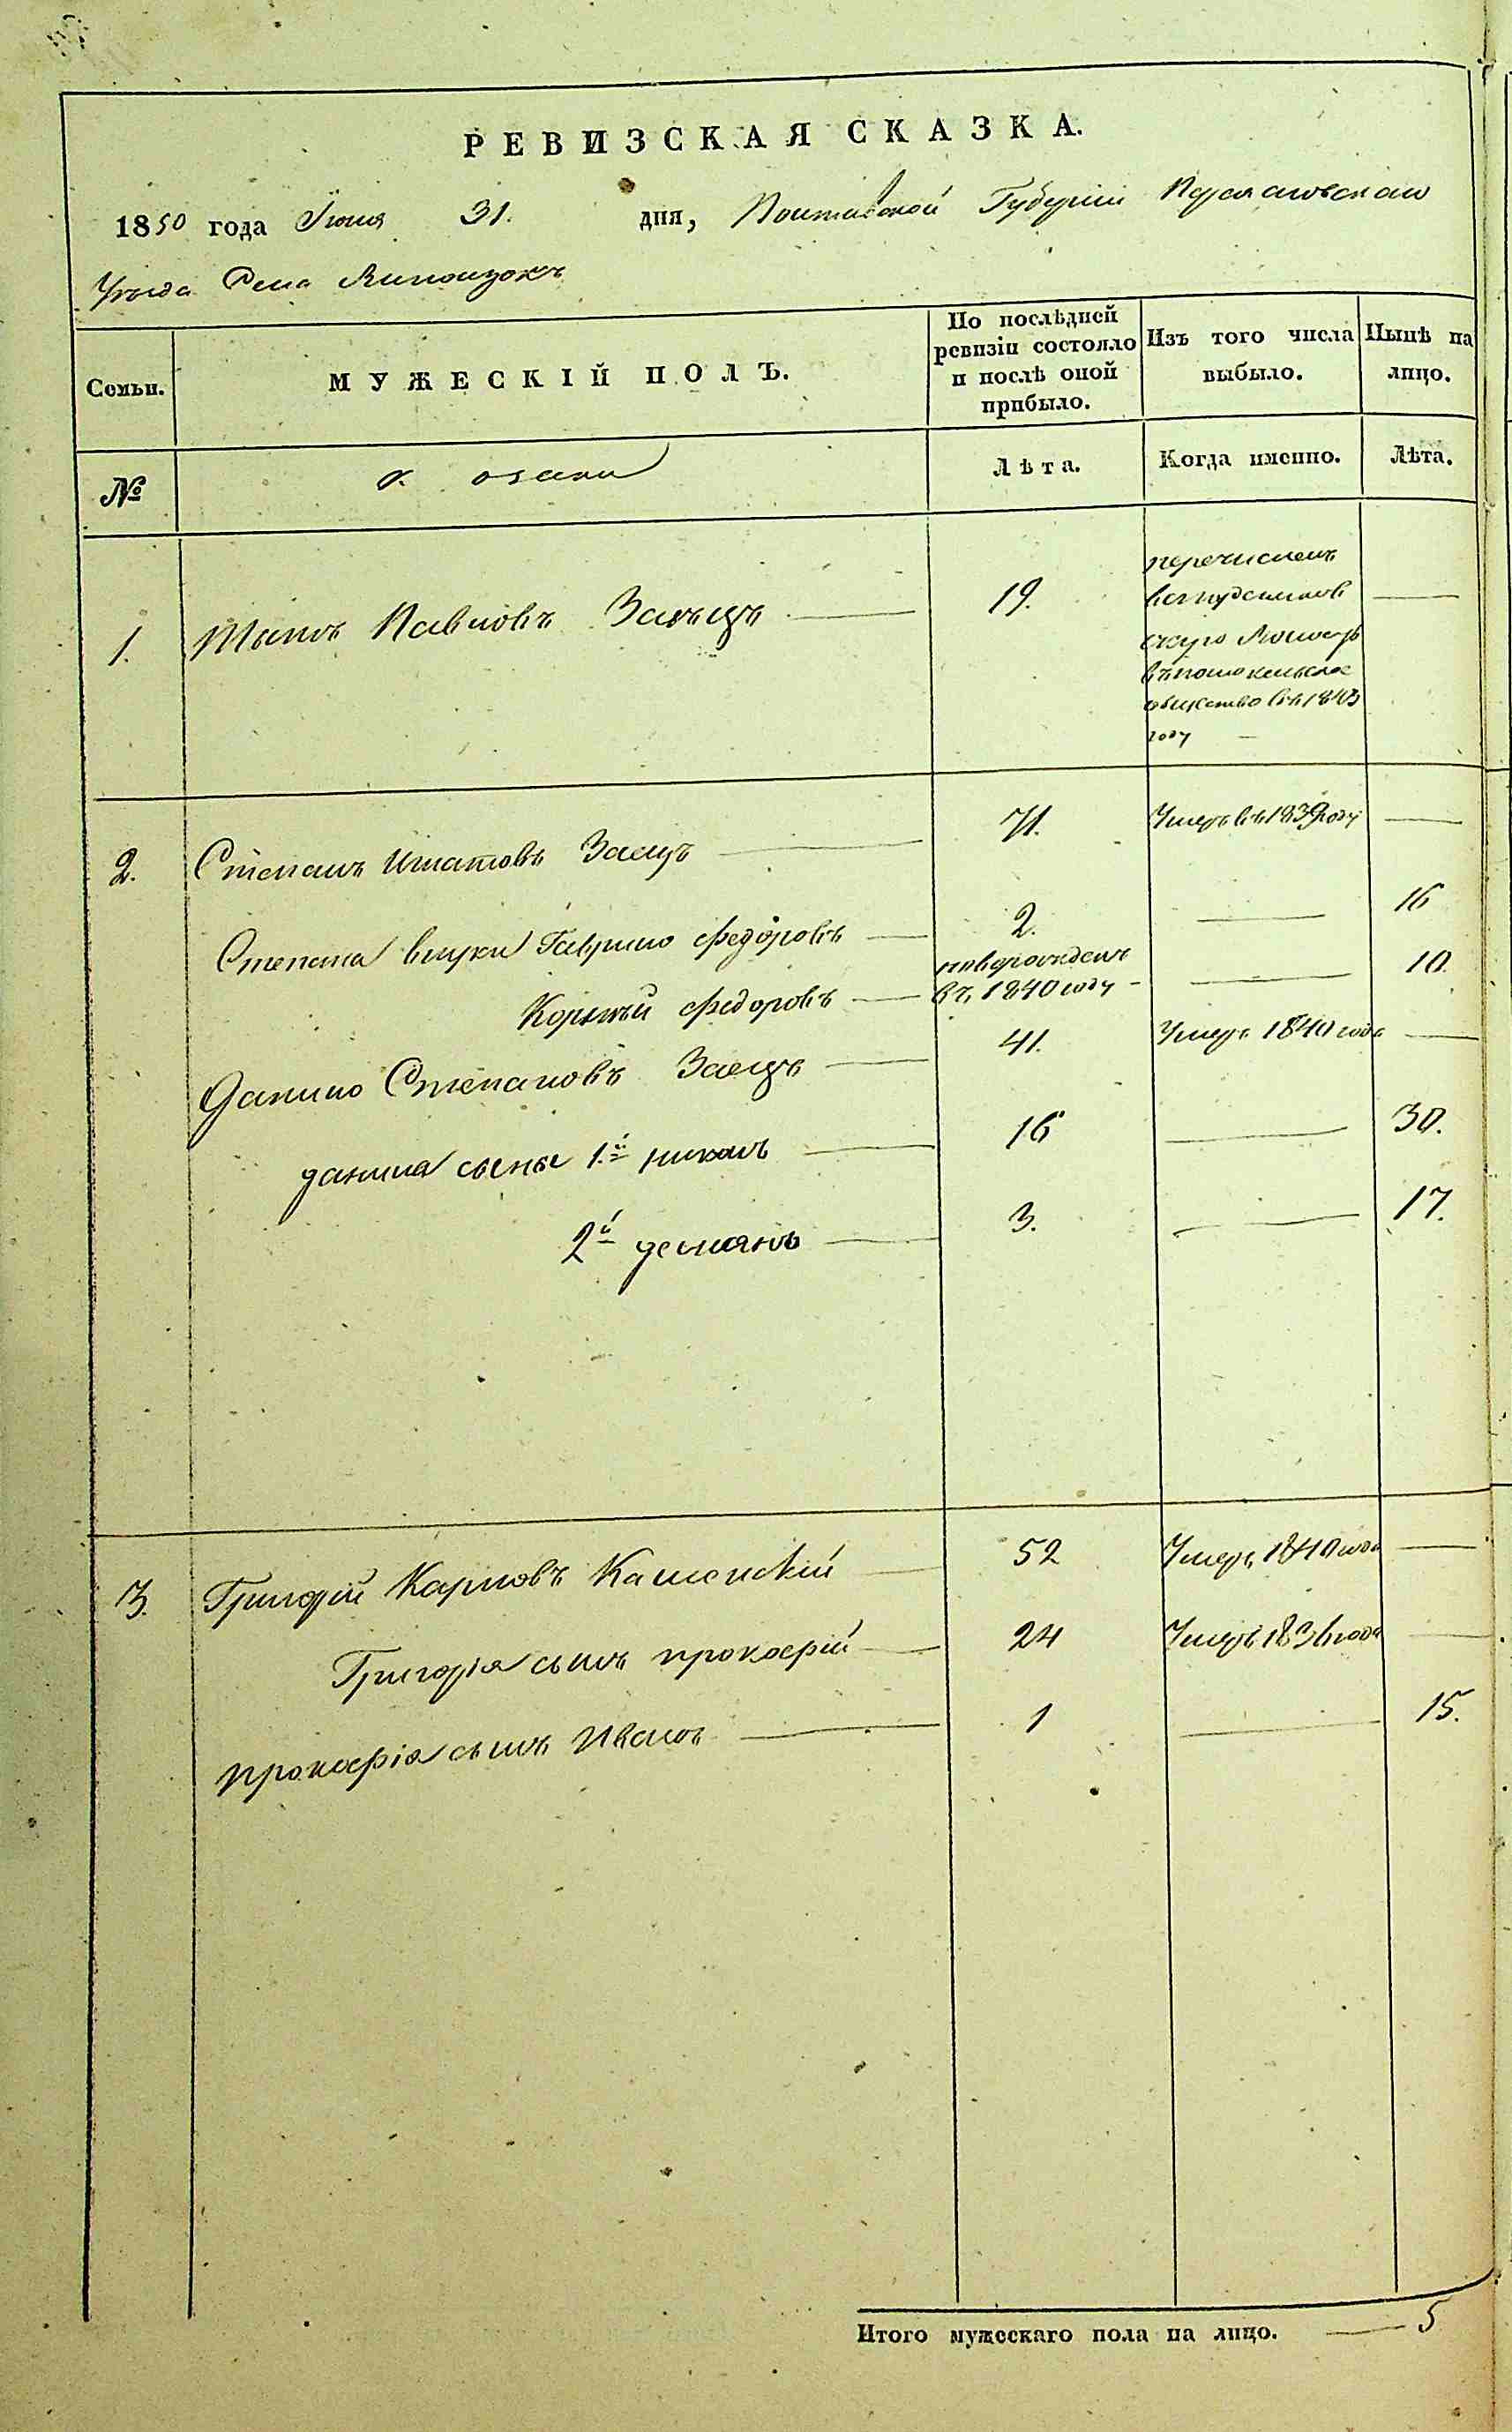 РЕВИЗСКАЯ СКАЗКА.
1850 года Іюня 31. дня, Полтавской Губерніи
Уѣзда Села
Семьи. МУЖЕСКІЙ ПОЛЪ. По послѣдней ревизіи состояло и послѣ оной прибыло. Изъ того числа выбыло. Нынѣ на лицо.
№ Лѣта. Когда именно. Лѣта.
1. Павловъ Заецъ 19. перечисленъ
общество въ 1843
году
2. Степанъ Игнатовъ Заецъ 71. Умеръ въ 1839 году
Степана внуки Гаврило Федоровъ 2. 16
Корнѣй Федоровъ новорожденъ въ 1840 году 10.
Данило Степановъ Заецъ 41. Умеръ 1840 года
Данила сыны 1й 16 30.
2й демянъ 3. 17.
3. Григорій Карповъ 52 Умеръ 1840 года
Григорія сынъ прокофій 24 Умеръ 1836 года
прокофія сынъ Иванъ 1 15.
Итого мужескаго пола на лицо. 5